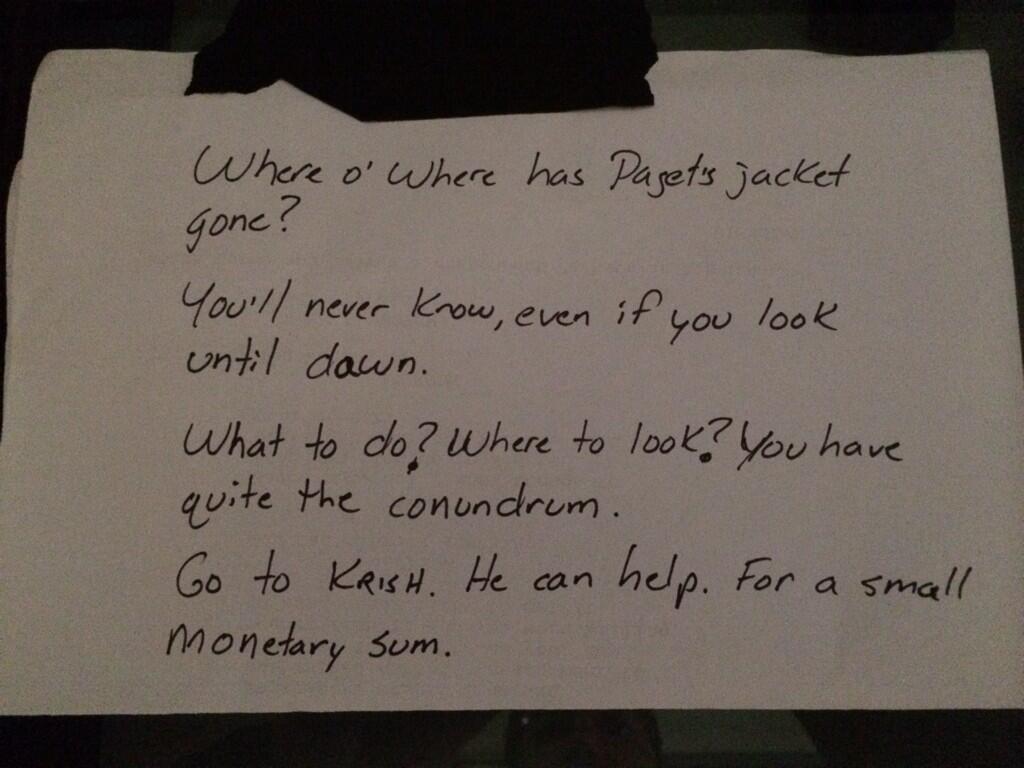 Where o' Where has Paget's jacket
gone?
You'll never know, even if you look
until dawn.
What to do? Where to look? You have
quite the conundrum.
Go to KRISH. He can help. For a small
monetary sum.